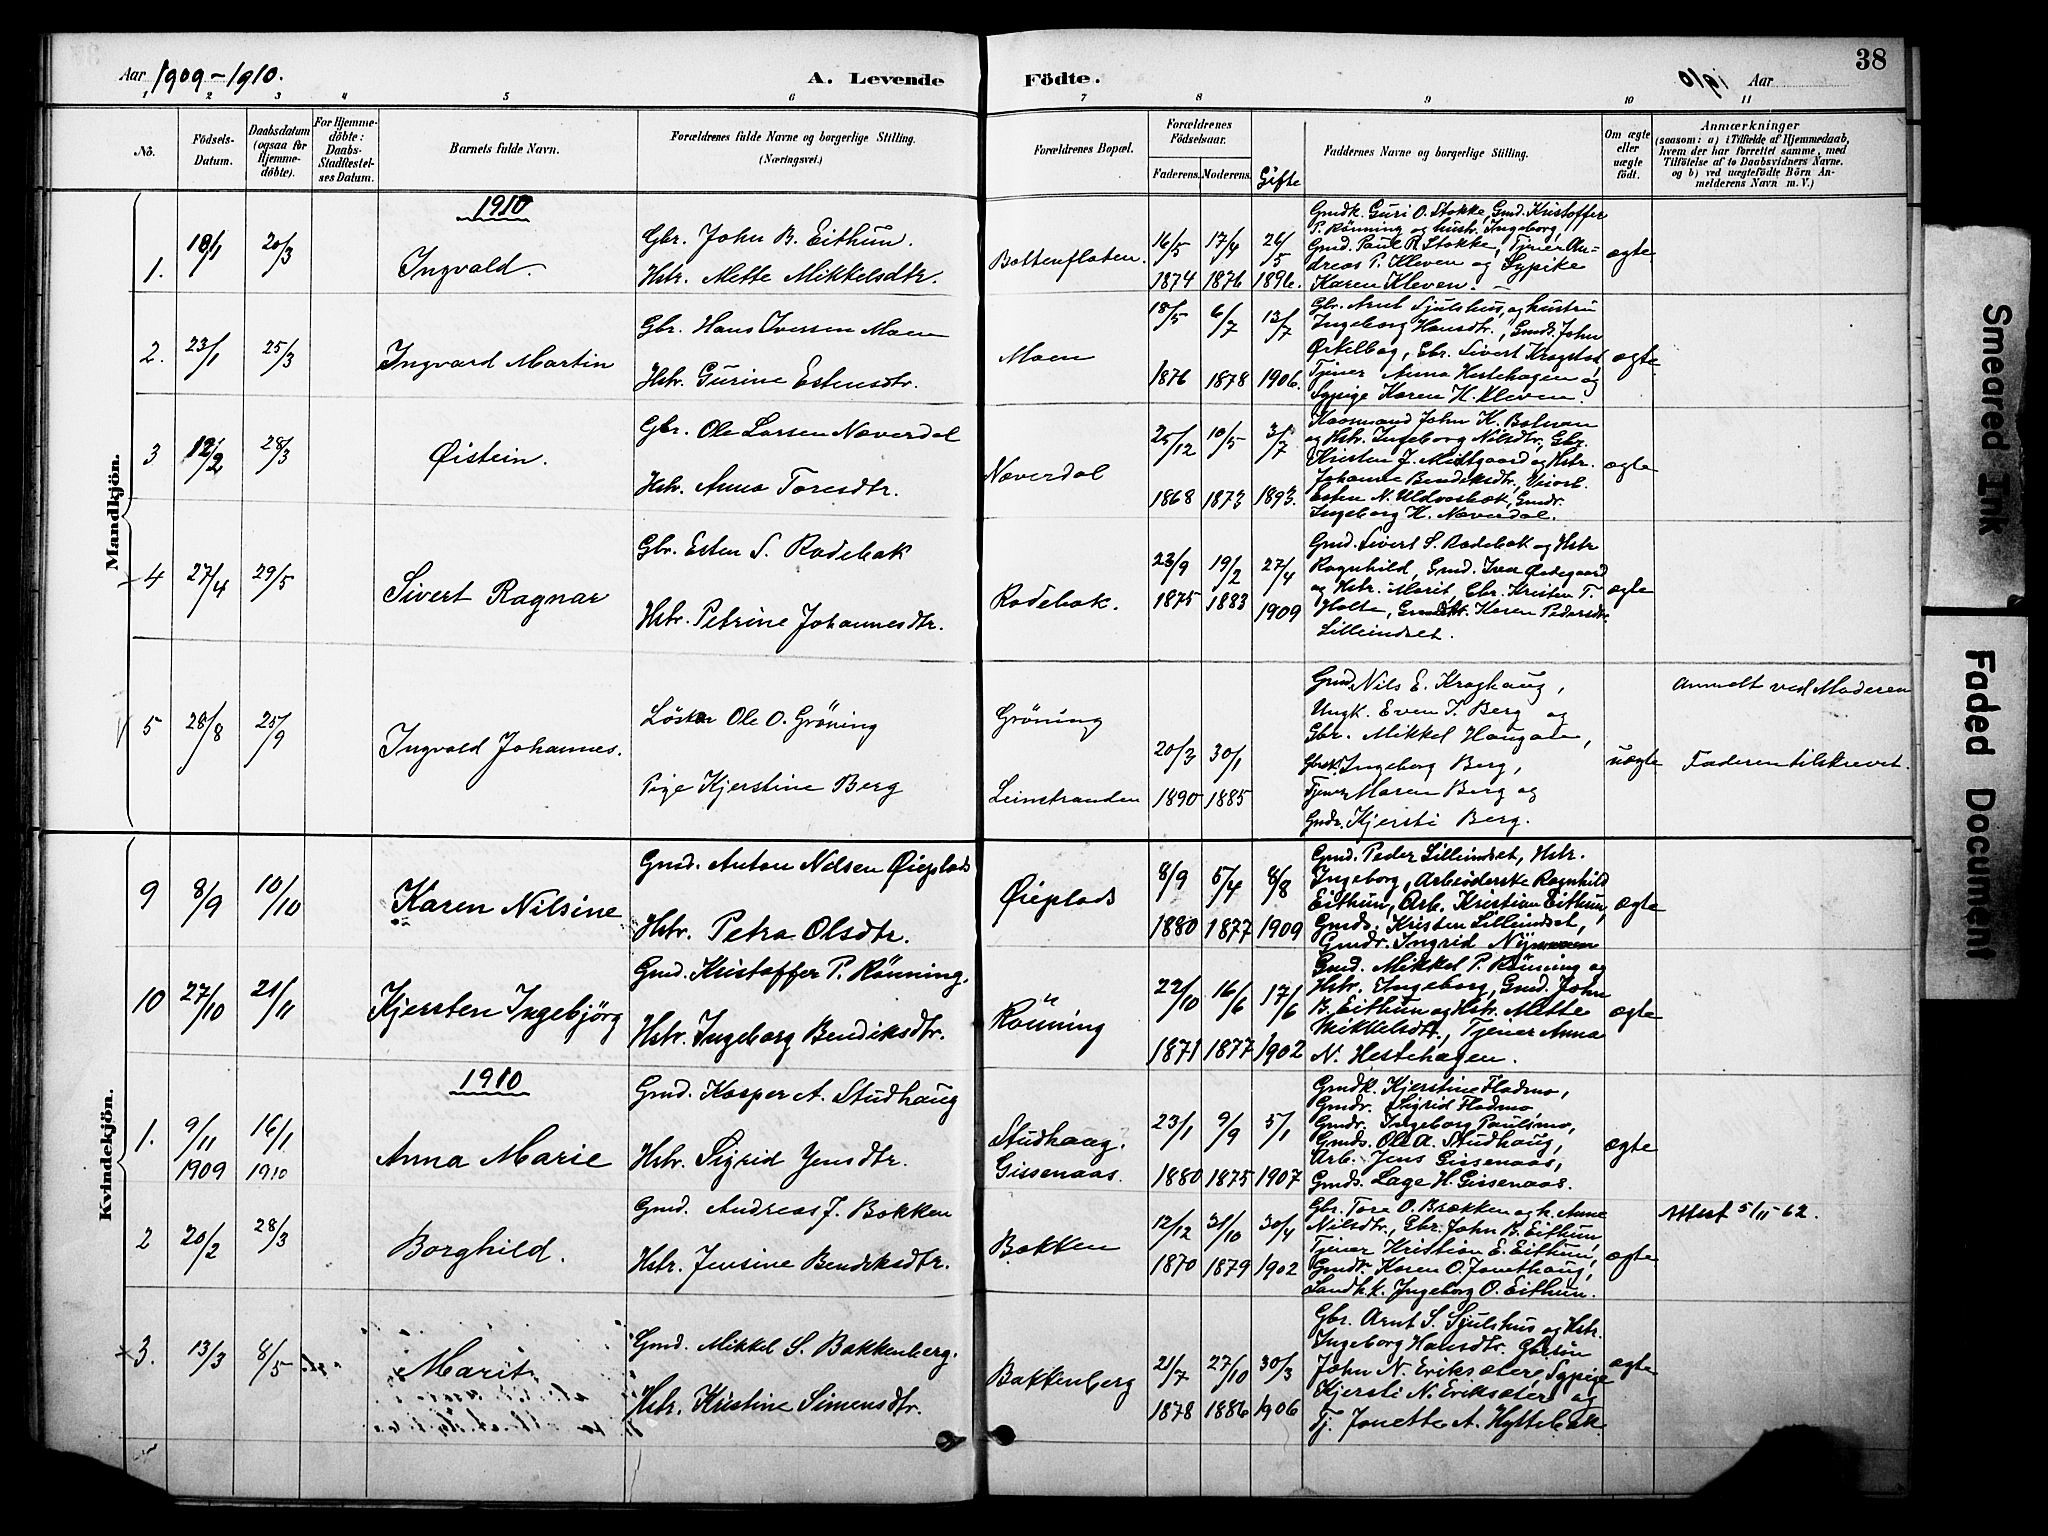 38
Aar 1909-1910.
A. Levende
Födte.
1910 Aar
1 2 3 4 5 6 7 8 9 10 11
No.
Födsels-
Datum.
Daabsdatum
(ogsaa for
Hjemme-
döbte).
For Hjemme-
döbte:
Daabs-
Stadfæstel-
ses Datum.
Barnets fulde Navn.
Forældrenes fulde Navne og borgerlige Stilling.
(Næringsvei.)
Forældrenes Bopæl.
Forældrenes
Födselsaar.
Faderens. Moderens.
Gifte
Faddernes Navne og borgerlige Stilling.
Om ægte
eller
uægte
født.
Anmærkninger
(saasom: a) i Tilfælde af Hjemmedaab,
hvem der har forrettet samme, med
Tilföielse af to Daabsvidners Navne.
og b) ved uægtefödte Börn An-
melderens Navn m. V.)
Mandkjön.
1910
1. 18/1 20/3 Ingvald.
Gbr. John B. Eithun.
Hstr. Mette Mikkelsdtr.
Bottenflaten.
16/5 17/4 26/5
1874 1876 1896.
Gmdk. Guri O. Stokke, Gmd. Kristoffer
P. Rönning og hustr. Ingeborg,
Gmd. Paul R. Stokke, Tjener An-
dreas P. Kleven og Sypike
Karen Kleven.
ægte
2. 23/1 25/3 Ingvard Martin
Gbr. Hans Iversen Moen
Hstr. Gurine Estensdtr.
Moen
18/5 6/7 13/7
1876 1878 1906.
Gbr. Arnt Sjulshus, og hustru
Ingeborg Hansdtr., Gmds. John
Ørkelbog, Gbr. Sivert Kragstad,
Tjener Anna Hestehagen og
Sypige Karen H. Kleven.
ægte
3 12/2 28/3 Øistein.
Gbr. Ole Larsen Næverdal
Hstr. Anna Toresdtr.
Næverdal
25/12 10/5 3/7
1868 1873 1893.
John K.
og Hstr. Ingeborg Nilsdtr, Gbr.
Kristen J. Midtgaard og Hstr.
Johanne Bendiksdtr,
Esten N. Gmdr.
Ingeborg K. Næverdal.
ægte
4 27/4 29/5 Sivert Ragnar
Gbr. Esten S. Rodebak
Hstr. Petrine Johannesdtr.
Rodebak.
23/9 19/2 27/4
1875 1883 1909
Gmd. Sivert S. Rodebak og Hstr
Ragnhild, Gmd. Iver Østegaard
og Hstr. Marit, Gbr. Kristen T.
Holte, Karen Pedersdtr.
Lilleindset.
ægte
5 28/8 25/9 Ingvald Johannes.
Löskar Ole O. Gröning
Pige Kjerstine Berg
Gröning
Leinstranden
20/3 30/1
1890 1885
Gmd. Nils E. Kraghaug,
Ungk. Even I. Berg og
Gbr. Mikkel Haugan,
Ingeborg Berg,
Tjener Maren Berg og
Gmdr. Kjersti Berg.
uægte
Anmeldt ved Moderen
Faderen tilskrevet.
Kvindekjön.
9 8/9 10/10 Karen Nilsine
Gmd. Anton Nilsen Øieplads
Hstr. Petra Olsdtr.
Øieplads
8/9 5/4 8/8
1880 1877 1909
Gmd. Peder Lilleindset, Hstr.
Ingeborg, Arbeiderske Ragnhild
Eithun, Arb. Kristian Eithun,
Gmds. Kristen Lilleindset,
Gmdr. Ingrid Nymoen
ægte
10 27/10 21/11 Kjersten Ingebjörg
Gmd. Kristoffer P. Rönning.
Hstr. Ingeborg Bendiksdtr.
Rönning
22/10 16/6 17/6
1871 1877 1902
Gmd. Mikkel P. Rönning og
Hstr. Ingeborg, Gmd. John
B. Eithun og Hstr. Mette
Mikkelsdtr, Tjener Anna
N. Hestehagen.
ægte
1910
1. 9/11 1909 16/1 1910 Anna Marie
Gmd. Kasper A. Studhaug
Hstr. Sigrid Jensdtr.
Studhaug.
Gissenaas.
23/1 9/9 5/1
1880 1875 1907
Gmdk. Kjerstine Fladmo,
Gmdr. Sigrid Fladmo
Gmdr. Ingeborg Paulsmo,
Gmds. Ole A. Studhaug,
Arb. Jens Gissenaas,
Gmds. Lage H. Gissenaas.
ægte
2 20/2 28/3 Borghild.
Gmd. Andreas J. Bakken
Hstr. Jensine Bendiksdtr.
Bakken
12/12 31/10 30/4
1870 1879 1902
Gbr. Tore O. Brækken og h. Anne
Nilsdtr., Gbr. John B. Eithun,
Tjener Kristian E. Eithun,
Gmdtr. Karen O. Jonethaug,
Landh.k. Ingeborg O. Eithun.
ægte
Attest 5/11-62.
3. 13/3 8/5 Marit
Gmd. Mikkel S. Bakkenberg.
Hstr. Kristine Simensdtr.
Bakkenberg
21/7 27/10 30/3
1878 1886 1906
Gbr. Arnt S. Sjulshus og Hstr.
Ingeborg Hansdtr. Gbrsön
John N. Eriksæter, Sypige
Kjersti N. Eriksæter og
Tj. Jonette A. Hyttebak.
ægte
Smeared Ink
Faded Document